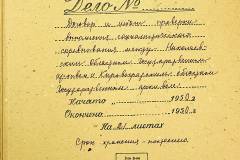 Дело №
Договор и итоги проверки
выполнения социалистического
соревнования между Николаев-
ским областным Госуд.
архивом и Кировоградским областным
Государственным архивом
Начато 1950 г
Окончено 1950 г.
На 21 листах
Срок хранения -